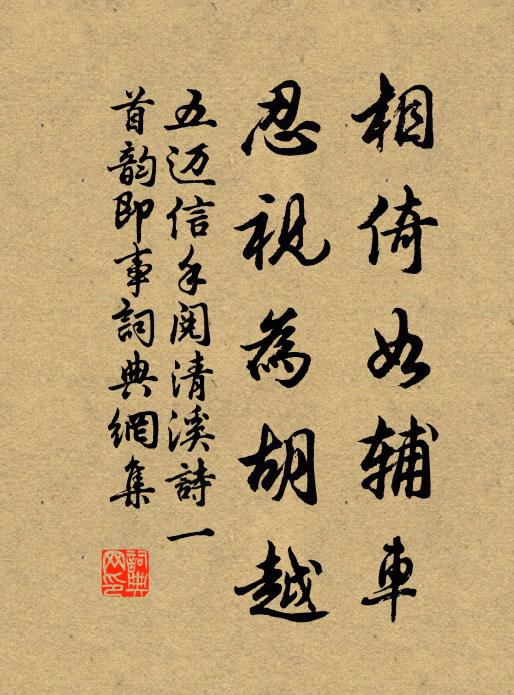 相倚如辅車
忍視為胡越
五迈信手阅清溪詩一
首韵即事詞典網集
詞典網印